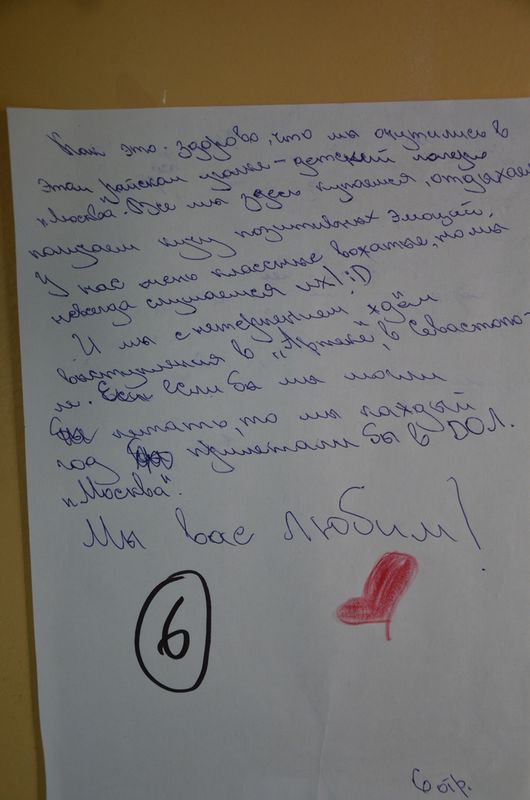 Как это здорово, что мы очутились в
этом райском уголке - детский лагерь
"Москва". Все мы здесь купаемся, отдыхаем
получаем кучу позитивных эмоций.
У нас очень классные вожатые, но мы
невсегда слушаемся их! :D
И мы с нетерпением ждём
выступления в "Артеке", в Севастопо-
ле. если бы мы могли
летать, то мы каждый
год прилетали бы в ДОЛ.
"Москва".
Мы вас любим!
6
6 отр.